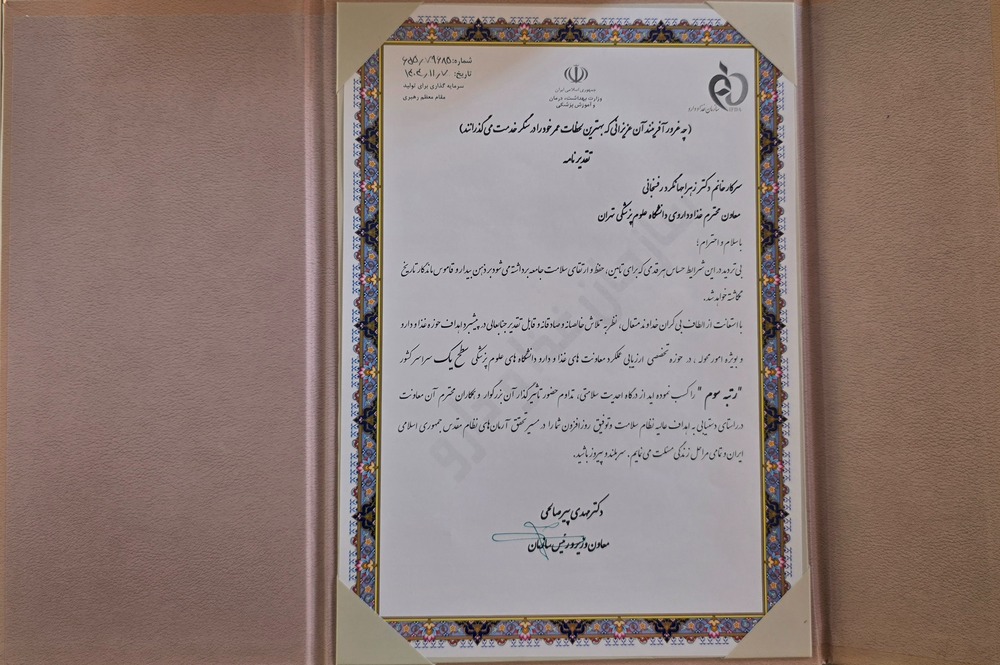 شماره: ۶۵۵/۷۹۶۸۵
تاریخ: ۱۴۰۴/۱۱/۰۷
سرمایه گذاری برای تولید
مقام معظم رهبری
جمهوری اسلامی ایران
وزارت بهداشت، درمان
و آموزش پزشکی
سازمان غذا و دارو
(چه غرور آفرینند آن عزیزانی که بهترین لحظات عمر خود را در سنگر خدمت می گذرانند)
تقدیرنامه
سرکار خانم دکتر زهرا جهانگرد رفسنجانی
معاون محترم غذا و داروی دانشگاه علوم پزشکی تهران
با سلام و احترام؛
بی تردید در این شرایط حساس هر قدمی که برای تامین، حفظ و ارتقای سلامت جامعه برداشته می شود بر ذهن بیدار و قاموس ماندگار تاریخ
نگاشته خواهد شد.
با استعانت از الطاف بی کران خداوند متعال، نظر به تلاش خالصانه و صادقانه و قابل تقدیر جنابعالی در پیشبرد اهداف حوزه غذا و دارو
و بویژه امور محوله، در حوزه تخصصی ارزیابی عملکرد معاونت های غذا و دارو دانشگاه های علوم پزشکی سطح یک سراسر کشور
"رتبه سوم" را کسب نموده اید از درگاه احدیت سلامتی، تداوم حضور تاثیرگذار آن بزرگوار و همکاران محترم آن معاونت
در راستای دستیابی به اهداف عالیه نظام سلامت و توفیق روز افزون شما را در مسیر تحقق آرمان های نظام مقدس جمهوری اسلامی
ایران و تمامی مراحل زندگی مسئلت می نمایم. سربلند و پیروز باشید.
دکتر مهدی پیرصالحی
معاون وزیر و رئیس سازمان